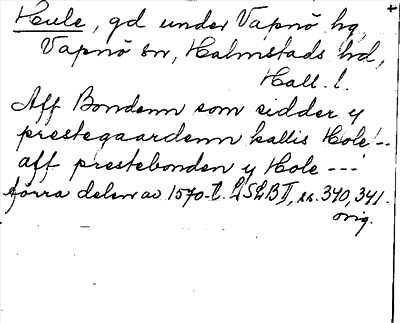 Heule, gd under Vapnö hg,
Vapnö sn, Halmstads hd,
Hall. l.
Aff Bondenn som sidder y
prestegaardenn kallis Hole!--
aff prestebonden y Hole ---
förra delen av 1570-t. LSLB II, ss. 340, 341.
orig.